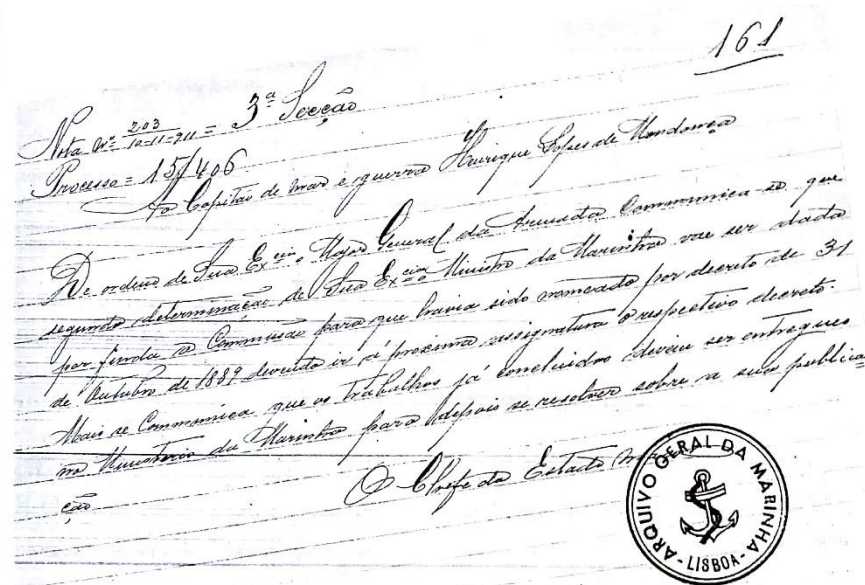 161
Nota nº 203 10-11-911 = 3ª Secção
Processo = 15/406
Ao Capitão de mar e guerra Henrique Lopes de Mendonça
De ordem de Sua Exciª o Major General da Armada Communica-se que
segundo determinação de Sua Exciª o Ministro da Marinha vae ser dada
por finda a Commissão para que havia sido nomeado por decreto de 31
de Outubro de 1889 devendo ir á proxima assignatura o respectivo decreto.
Mais se Communica que os trabalhos já concluidos devem ser entregues
no Ministerio da Marinha para depois se resolver sobre a sua publica=
ção
O Chefe do Estado
ARQUIVO GERAL DA MARINHA - LISBOA -